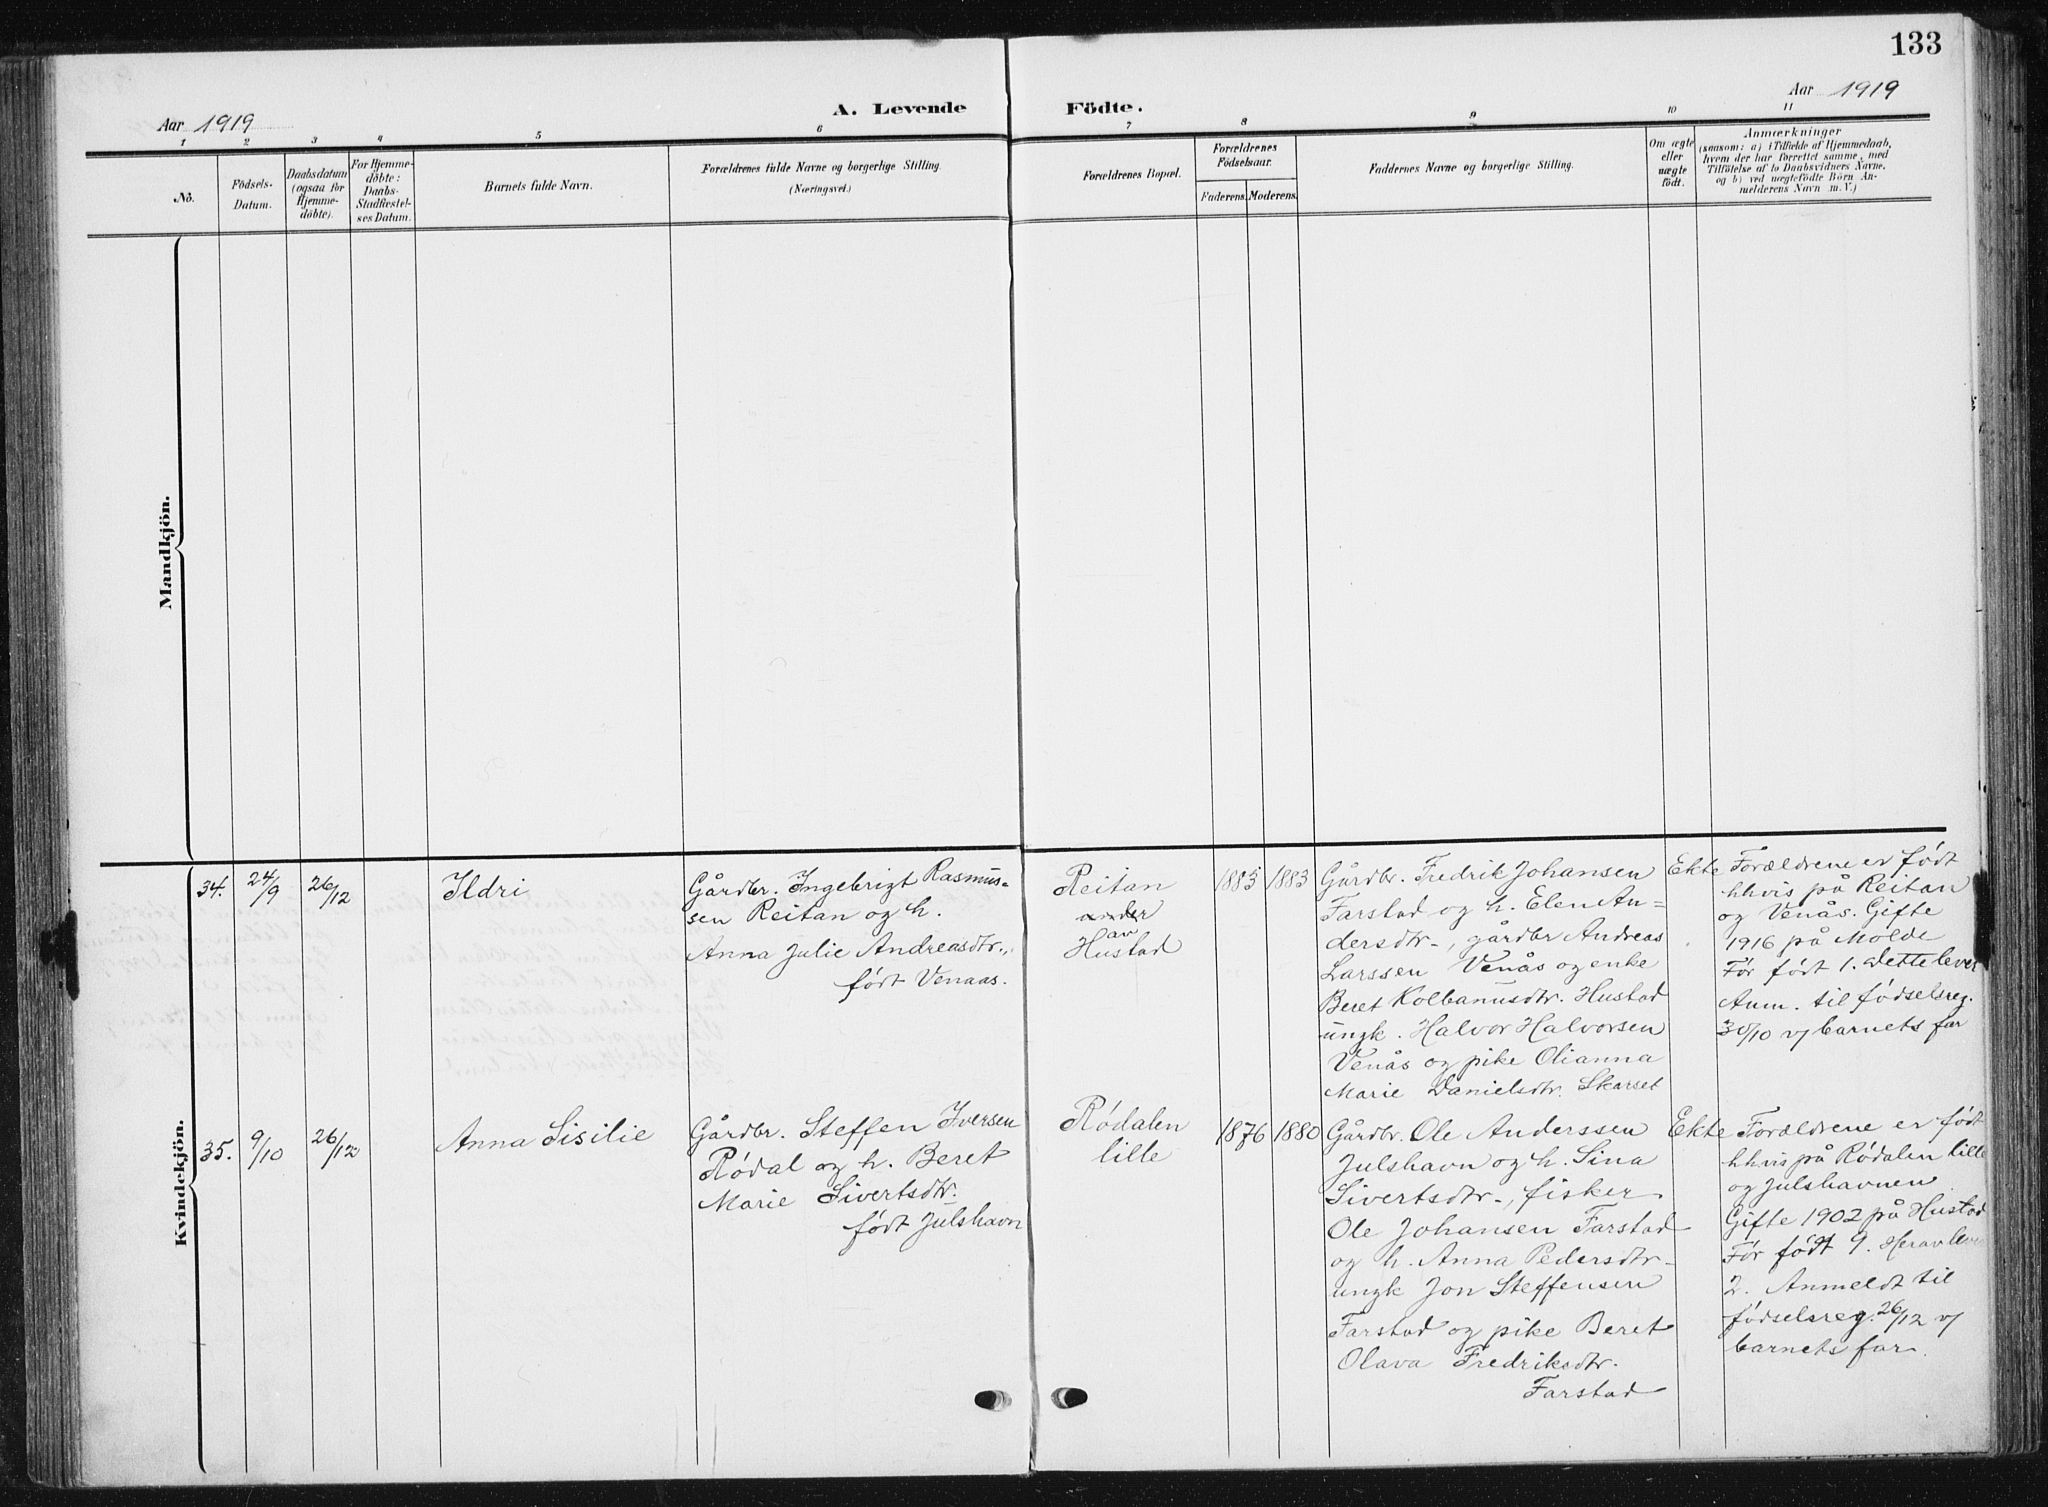 133
Aar 1919
A. Levende Födte.
Aar 1919
1 2 3 4 5 6 7 8 9 10 11
No.
Födsels-
Datum.
Daabsdatum
(ogsaa for
Hjemme-
döbte).
For Hjemme-
döbte:
Daabs-
Stadfæstel-
ses Datum.
Barnets fulde Navn.
Forældrenes fulde Navne og borgerlige Stilling.
(Næringsvei.)
Forældrenes Bopæl.
Forældrenes
Födselsaar.
Faderens.
Moderens.
Faddernes Navne og borgerlige Stilling.
Om ægte
eller
uægte
födt.
Anmærkninger
(saasom: a) i Tilfælde af Hjemmedaab,
hvem der har forrettet samme, med
Tilföielse af to Daabsvidners Navne,
og b) ved uægtefödte Börn An-
melderens Navn m. V.)
Mandkjön.
Kvindekjön.
34.
24/9
26/12
Ildri
Gårdbr. Ingebrigt Rasmus-
sen Reitan og h.
Anna Julie Andreasdtr.,
født Venaas.
Reitan
under
av
Hustad
1885
1883
Gårdbr. Fredrik Johansen
Farstad og h. Elen An-
dersdtr., gårdbr Andreas
Larssen Venås og enke
Beret Kolbanusdtr. Hustad
ungk. Halvor Halvorsen
Venås og pike Olianna
Marie Danielsdtr. Skarset
Ekte
Forældrene er født
hhvis på Reitan
og Venås. Gifte
1916 på Molde
Før født 1. Dette lever
Anm. til fødselsreg.
30/10 v/ barnets far
35.
9/10
26/12
Anna Sisilie
Gårdbr. Steffen Iversen
Rødal og h. Beret
Marie Sivertsdtr.
født Julshavn
Rødalen
lille
1876
1880
Gårdbr. Ole Anderssen
Julshavn og h. Sina
Sivertsdtr., fisker
Ole Johansen Farstad
og h. Anna Pedersdtr.
ungk Jon Steffensen
Farstad og pike Beret
Olava Fredriksdtr.
Farstad
Ekte
Forældrene er født
hhvis på Rødalen lille
og Julshavnen
Gifte 1902 på Hustad
Før født 9. Herav leve
2. Anmeldt til
fødselsreg. 26/12 v/
barnets far.